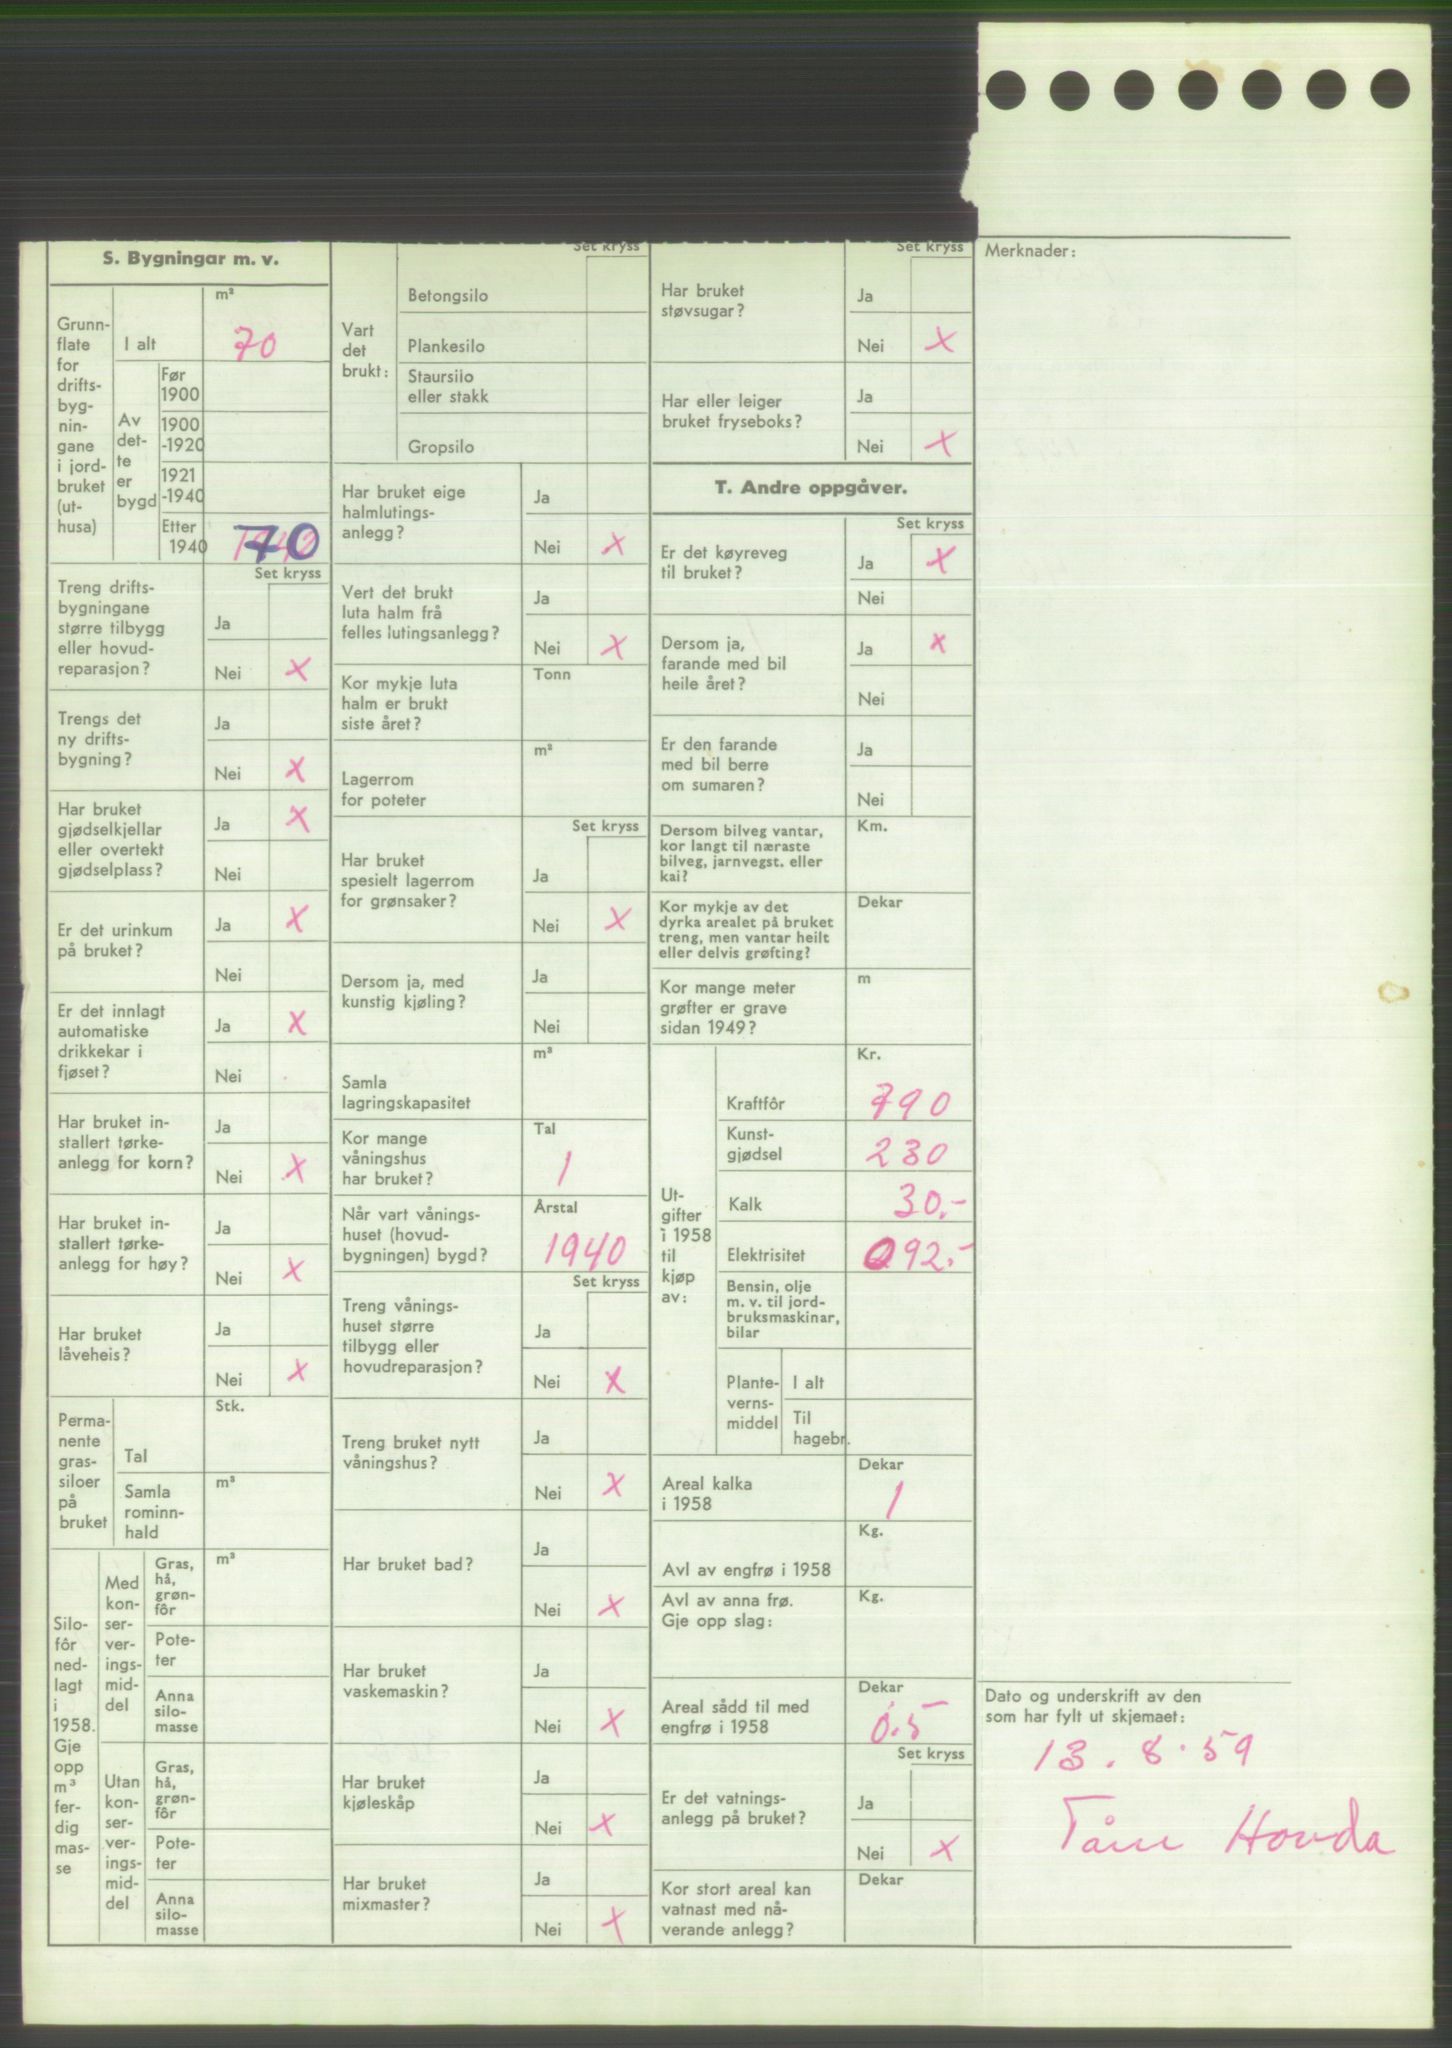 S. Bygningar m. v.
Grunn-
flate
for
drifts-
byg-
nin-
gane
i jord-
bruket
(ut-
husa)
m²
I alt
70
Av
det-
te
er
bygd
Før
1900
1900
-1920
1921
-1940
Etter
1940
70
Set kryss
Treng drifts-
bygningane
større tilbygg
eller hovud-
reparasjon?
Ja
Nei X
Trengs det
ny drifts-
bygning?
Ja
Nei X
Har bruket
gjødselkjellar
eller overtekt
gjødselplass?
Ja X
Nei
Er det urinkum
på bruket?
Ja X
Nei
Er det innlagt
automatiske
drikkekar i
fjøset?
Ja X
Nei
Har bruket in-
stallert tørke-
anlegg for korn?
Ja
Nei X
Har bruket in-
stallert tørke-
anlegg for høy?
Ja
Nei X
Har bruket
låveheis?
Ja
Nei X
Perma-
nente
gras-
siloer
på
bruket
Stk.
Tal
Samla
rominn-
hald
m³
Silo-
fôr
ned-
lagt
i
1958.
Gje
opp
m³
fer-
dig
mas-
se
Med
kon-
ser-
ver-
ings-
mid-
del
Gras,
hå,
grøn-
fôr
m³
Pote-
ter
Anna
silo-
masse
Utan
kon-
ser-
ver-
ings-
mid-
del
Gras,
hå,
grøn-
fôr
Pote-
ter
Anna
silo-
masse
Set kryss
Vart
det
brukt:
Betongsilo
Plankesilo
Staursilo
eller stakk
Gropsilo
Har bruket eige
halmlutings-
anlegg?
Ja
Nei X
Vert det brukt
luta halm frå
felles lutingsanlegg?
Ja
Nei X
Kor mykje luta
halm er brukt
siste året?
Tonn
Lagerrom
for poteter
m²
Set kryss
Har bruket
spesielt lagerrom
for grønsaker?
Ja
Nei X
Dersom ja, med
kunstig kjøling?
Ja
Nei
Samla
lagringskapasitet
m³
Kor mange
våningshus
har bruket?
Tal
1
Når vart vånings-
huset (hovud-
bygningen) bygd?
Årstal
1940
Set kryss
Treng vånings-
huset større
tilbygg eller
hovudreparasjon?
Ja
Nei X
Treng bruket nytt
våningshus?
Ja
Nei X
Har bruket bad?
Ja
Nei X
Har bruket
vaskemaskin?
Ja
Nei X
Har bruket
kjøleskåp
Ja
Nei X
Har bruket
mixmaster?
Ja
Nei X
Set kryss
Har bruket
støvsugar?
Ja
Nei X
Har eller leiger
bruket fryseboks?
Ja
Nei X
T. Andre oppgåver.
Set kryss
Er det køyreveg
til bruket?
Ja X
Nei
Dersom ja,
farande med bil
heile året?
Ja x
Nei
Er den farande
med bil berre
om sumaren?
Ja
Nei
Dersom bilveg vantar,
kor langt til næraste
bilveg, jarnvegst. eller
kai?
Km.
Kor mykje av det
dyrka arealet på bruket
treng, men vantar heilt
eller delvis grøfting?
Dekar
Kor mange meter
grøfter er grave
sidan 1949?
m
Ut-
gifter
i 1958
til
kjøp
av:
Kr.
Kraftfôr 790
Kunst-
gjødsel 230
Kalk 30.-
Elektrisitet 092.-
Bensin, olje
m. v. til jord-
bruksmaskinar,
bilar
Plante-
verns-
middel
I alt
Til
hagebr.
Areal kalka
i 1958
Dekar
1
Avl av engfrø i 1958
Kg.
Avl av anna frø.
Gje opp slag:
Kg.
Areal sådd til med
engfrø i 1958
Dekar
0.5
Set kryss
Er det vatnings-
anlegg på bruket?
Ja
Nei X
Kor stort areal kan
vatnast med nå-
verande anlegg?
Dekar
Merknader:
Dato og underskrift av den
som har fylt ut skjemaet:
13.8.59
Hovda